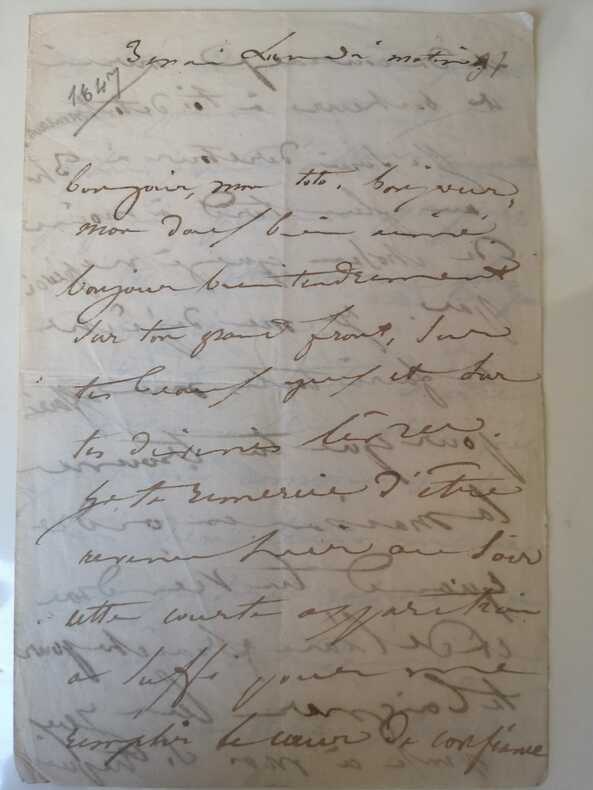 3 mai Lundi matin 9h
1847
bonjour, mon toto, bonjour,
mon doux bien aimé,
bonjour bien tendrement
sur ton grand front, sur
tes beaux yeux et sur
tes divines lèvres.
Je te remercie d'être
revenu hier au soir
cette courte apparition
a suffi pour me
remplir le cœur de confiance